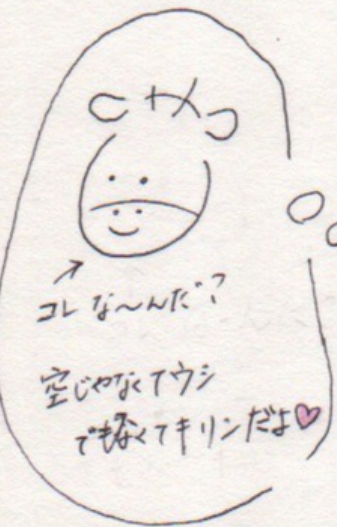 コレ な〜んだ?
空じゃなくてウシ
でもなくてキリンだよ♡